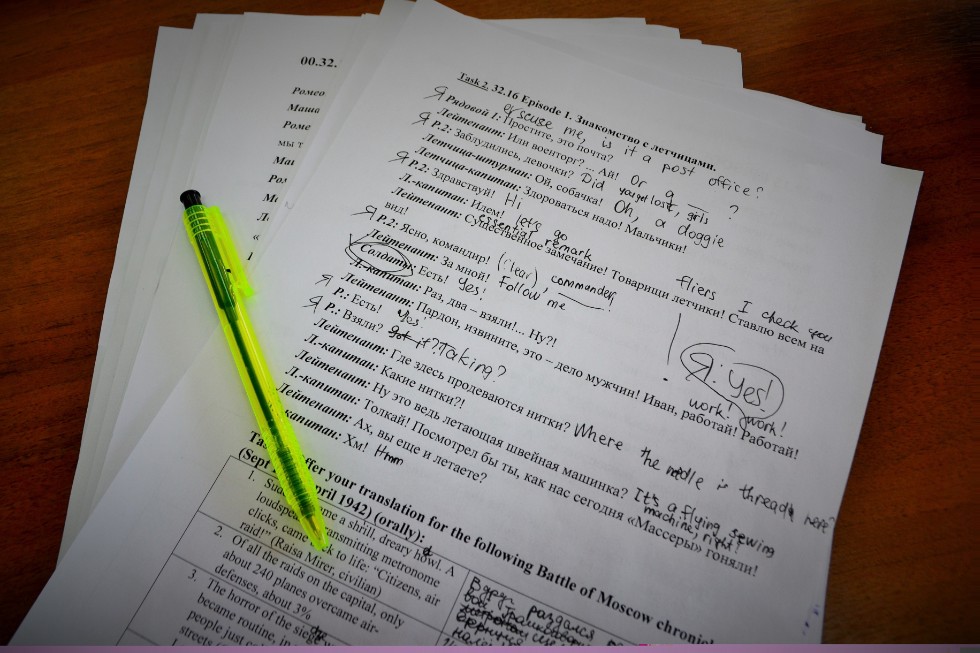 00.32.
Ромео
Маша
Роме
мы т
Маш
Task 2. 32.16 Episode 1. Знакомство с летчицами.
Я Рядовой 1: Простите, это почта? excuse me, is it a post office?
Лейтенант: Или военторг? ... Ай! Or a — ?
Я Р.2: Заблудились, девочки? Did you get lost, girls
Летчица-штурман: Ой, собачка! Oh, a doggie
Летчица-капитан: Здороваться надо! Мальчики!
Я Р.2: Здравствуй! Hi
Л.-капитан: Идем! let's go
essential remark
Лейтенант: Существенное замечание! Товарищи летчики! Ставлю всем на
вид! fliers I check you
Я Р.2: Ясно, командир! (Clear), commander
Лейтенант: За мной! Follow me
Солдаты: Есть! Yes!
Л.-капитан: Раз, два – взяли!... Ну?!
Лейтенант: Пардон, извините, это – дело мужчин! Иван, работай! Работай!
Я: Yes!
work! work!
Я Р.: Есть! Yes!
Я Р.: Взяли? got it? Taking?
Лейтенант: Где здесь продеваются нитки? Where the needle is threaded here?
Л.-капитан: Какие нитки?!
Лейтенант: Ну это ведь летающая швейная машинка? It's a flying sewing
machine, right!
Л.-капитан: Толкай! Посмотрел бы ты, как нас сегодня «Массеры» гоняли!
Лейтенант: Ах, вы еще и летаете?
капитан: Хм! Hmm
offer your translation for the following Battle of Moscow chronicl
(Sept April 1942) (orally):
1. a shrill, dreary howl. A
loudspe transmitting metronome
clicks, came back to life: "Citizens, air
raid!" (Raisa Mirer, civilian)
2. Of all the raids on the capital, only
about 240 planes overcame air-
defenses, about 3%
3. The horror of the siege
became routine, in
people just
streets
Вдруг раздался